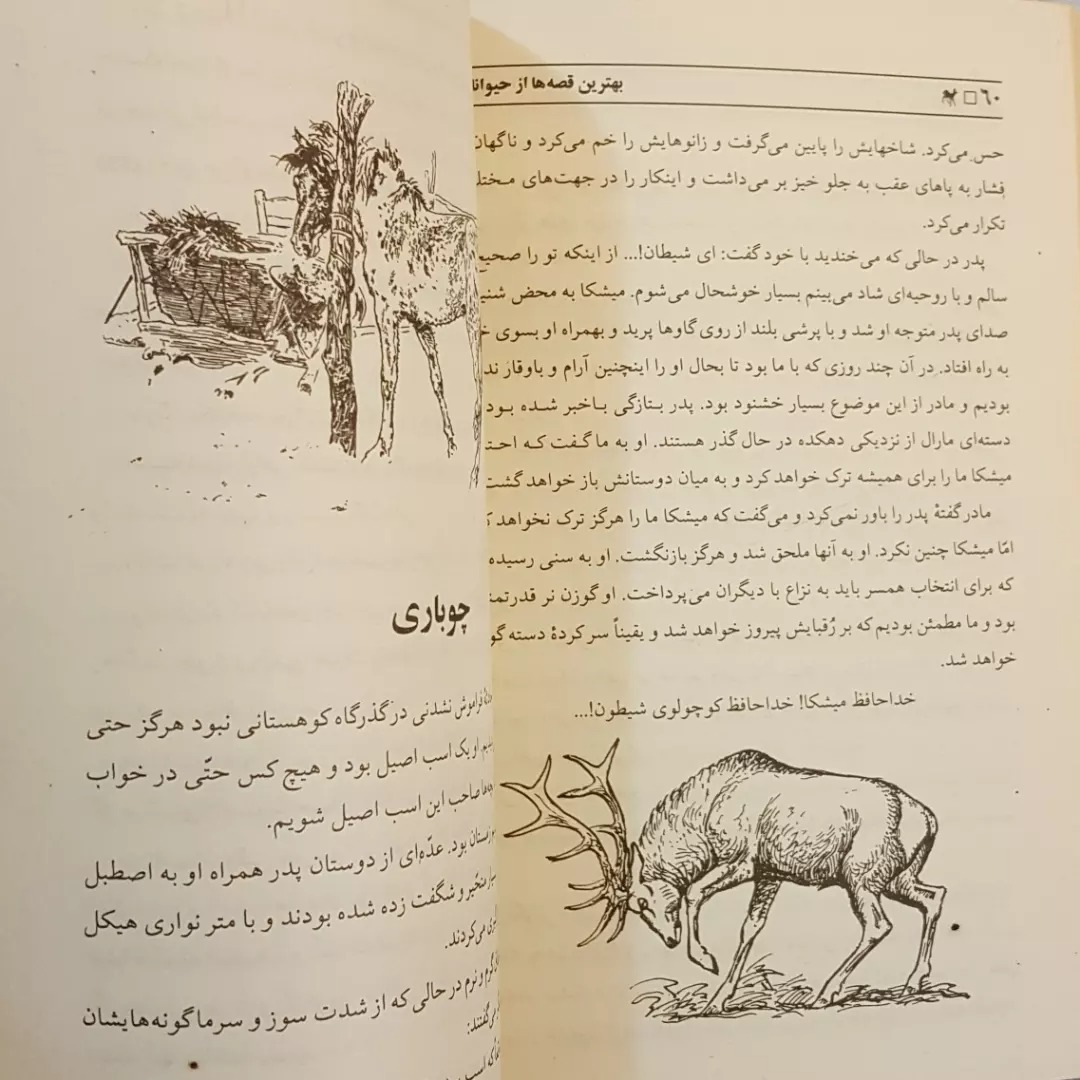 ۶۰ □ بهترین قصه‌ها از
حس می‌کرد. شاخهایش را پایین می‌گرفت و زانوهایش را خم می‌کرد و ناگهان
فشار به پاهای عقب به جلو خیز بر می‌داشت و اینکار را در جهت‌های
تکرار می‌کرد.
پدر در حالی که می‌خندید با خود گفت: ای شیطان!... از اینکه تو را صحیح
سالم و با روحیه‌ای شاد می‌بینم بسیار خوشحال می‌شوم. میشکا به محض
صدای پدر متوجه او شد و با پرشی بلند از روی گاوها پرید و بهمراه او بسوی
به راه افتاد. در آن چند روزی که با ما بود تا بحال او را اینچنین آرام و باوقار
بودیم و مادر از این موضوع بسیار خشنود بود. پدر بتازگی باخبر شده بود
دسته‌ای مارال از نزدیکی دهکده در حال گذر هستند. او به ما گفت که
میشکا ما را برای همیشه ترک خواهد کرد و به میان دوستانش باز خواهد گشت
مادر گفتهٔ پدر را باور نمی‌کرد و می‌گفت که میشکا ما را هرگز ترک نخواهد
امّا میشکا چنین نکرد. او به آنها ملحق شد و هرگز بازنگشت. او به سنی رسیده
که برای انتخاب همسر باید به نزاع با دیگران می‌پرداخت. او گوزن نر
بود و ما مطمئن بودیم که بر رُقبایش پیروز خواهد شد و یقیناً سرکردهٔ دسته
خواهد شد.
خداحافظ میشکا! خداحافظ کوچولوی شیطون!...
چوباری
فراموش نشدنی در گذرگاه کوهستانی نبود هرگز حتی
او یک اسب اصیل بود و هیچ کس حتّی در خواب
صاحب این اسب اصیل شویم.
بود. عدّه‌ای از دوستان پدر همراه او به اصطبل
متحیّر و شگفت زده شده بودند و با متر نواری هیکل
می‌کردند.
گرم و نرم در حالی که از شدت سوز و سرما گونه‌هایشان
می‌گفتند:
که اسب